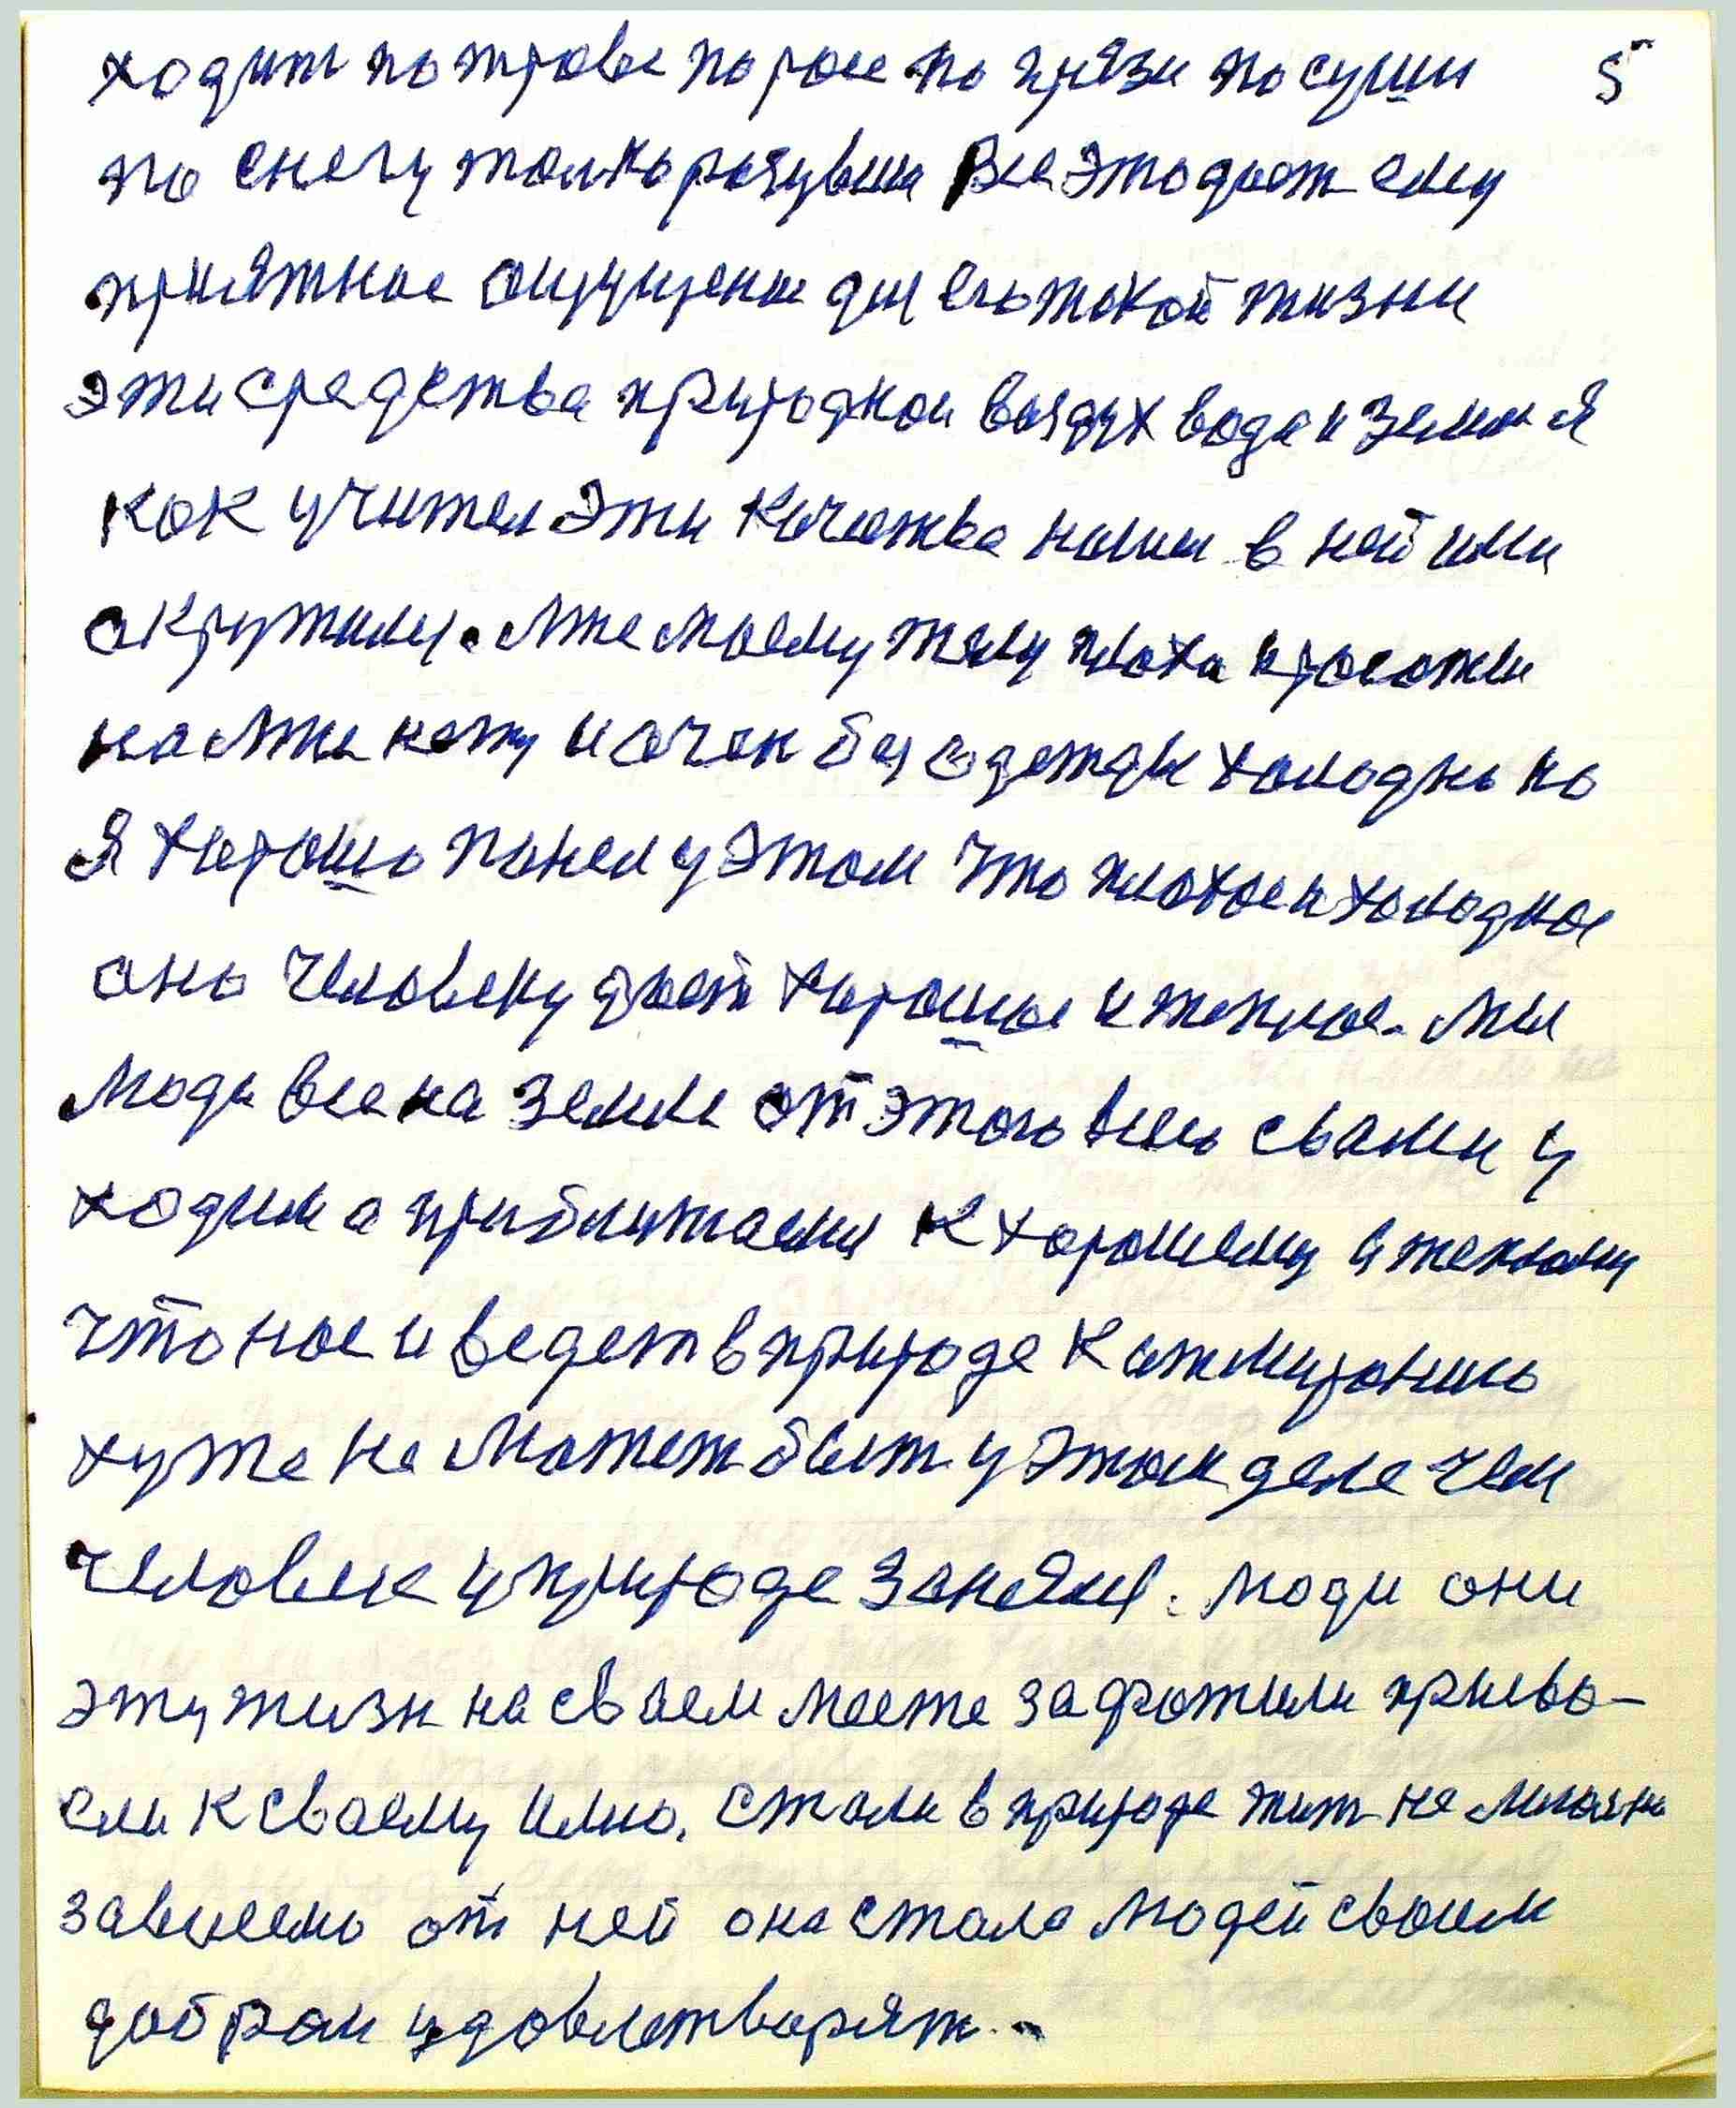 ходит по траве по росе по грязи по суши 5
по снегу только розувши Все это дает ему
приятное ощущение для его такой жизни
эти средства природнои воздух вода и земля
как учител эти качества нашы в ней ими
окружилис. Мне моему телу плоха и росатки
на мне нету и очен без одежды холодно но
Я хорошо понел у этом что плохое и холодное
оно человеку дает хорошое и теплое. Мы
люди все на земле от этого всего свами у
ходим а приближаемс к хорошему и теплому
что нас и ведет в природе к отмиранию
хуже не может быт у этом деле чем
человек у природе занялс. люди они
эту жизн на своем месте захватили присво-
ели к своему имю. Стали в природе жит не
зависемо от ней она стала людей своим
добром удовлетворят.